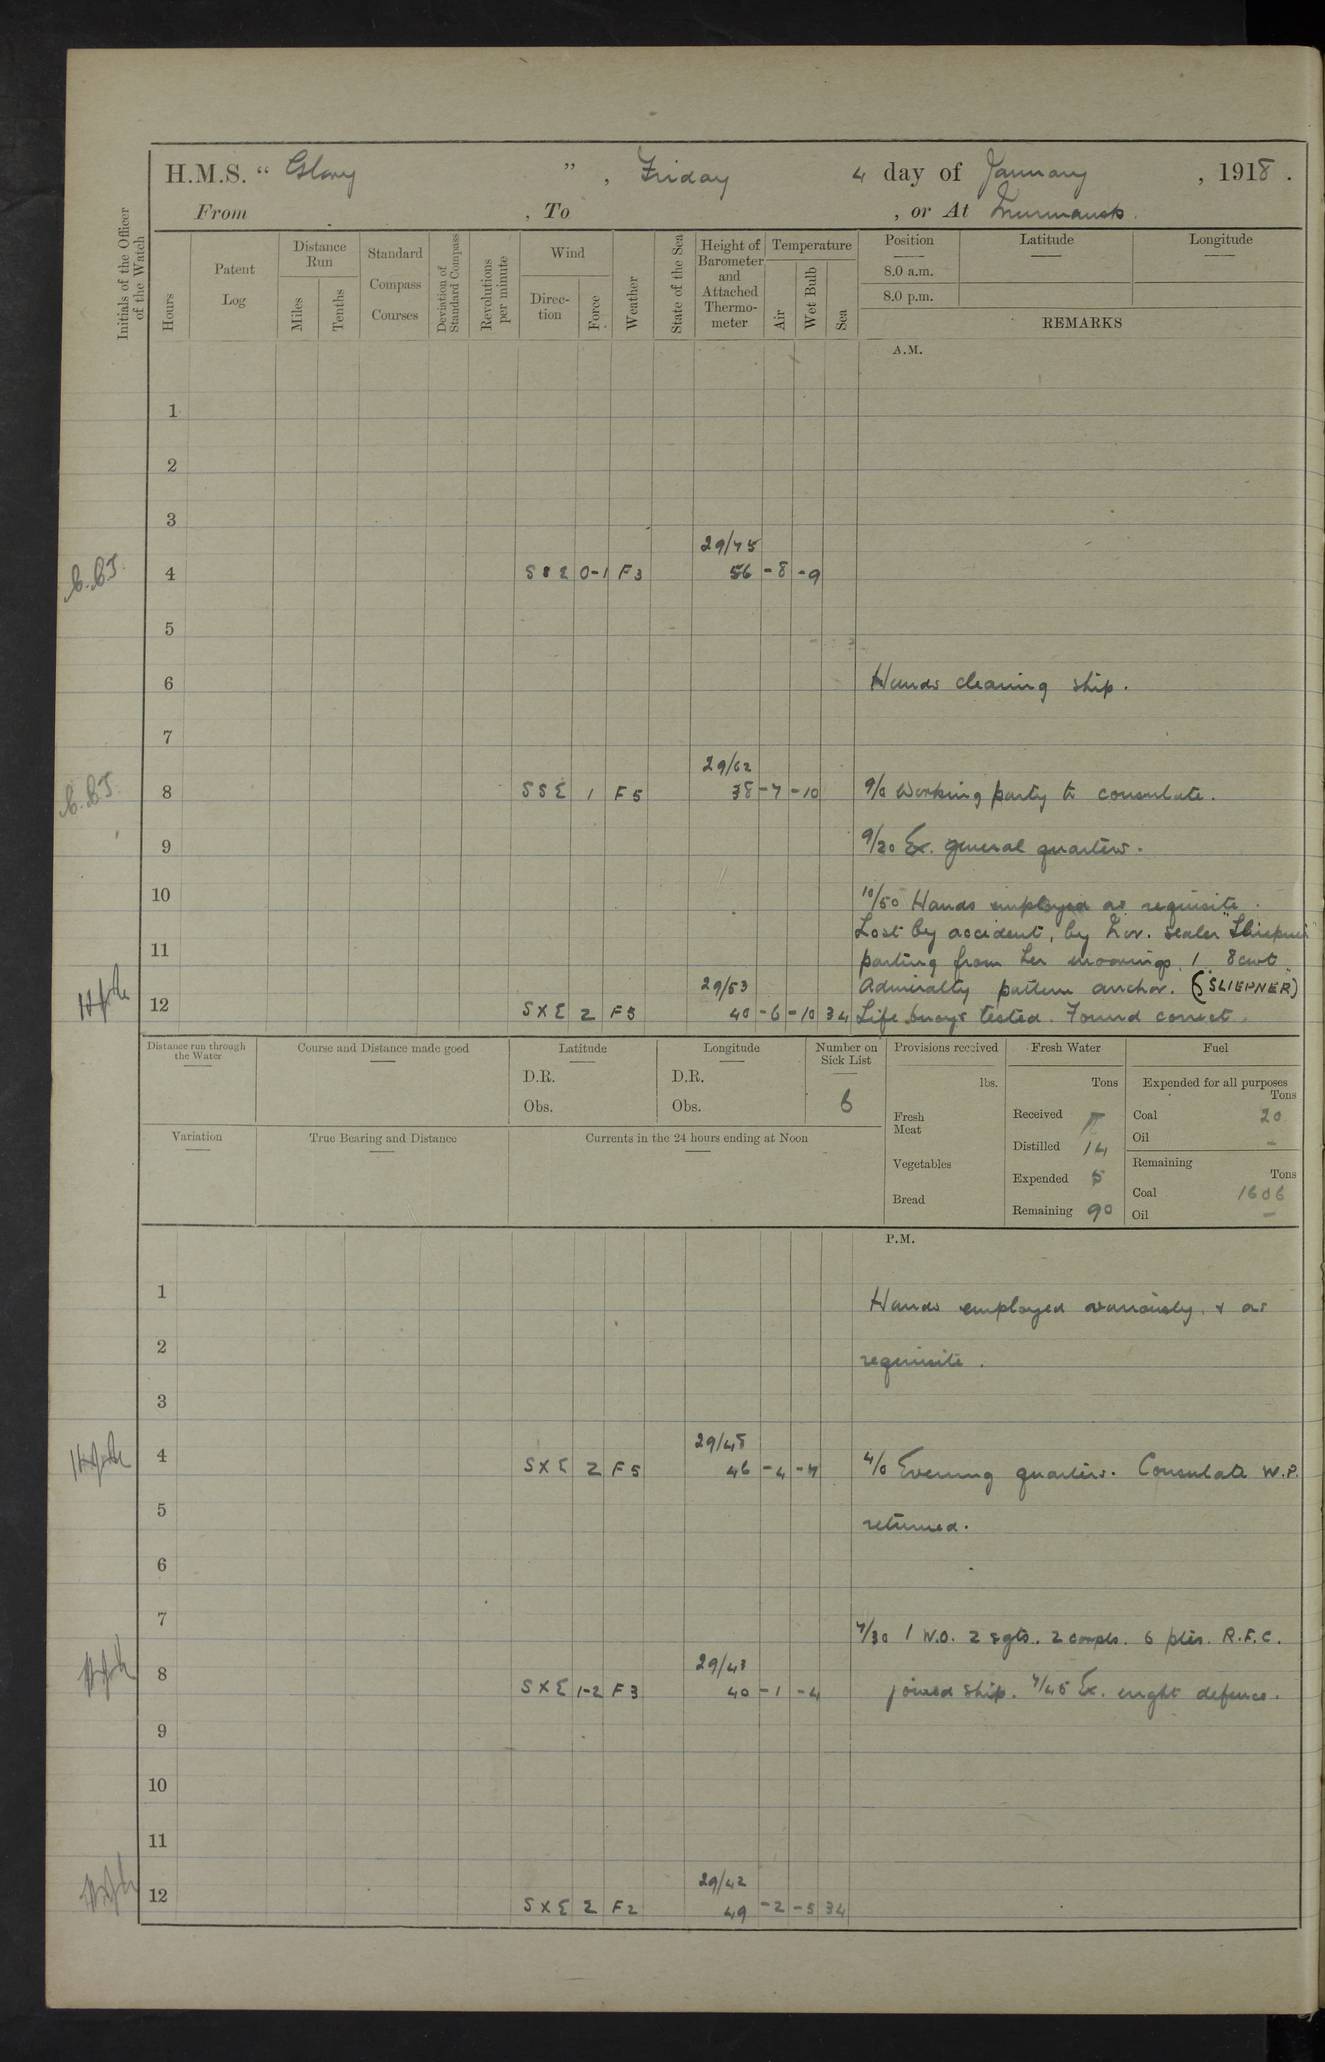 H.M.S. " Glory " , Friday 4 day of January , 1918 .
From , To , or At Murmansk.
Initials of the Officer of the Watch
Hours
Patent Log
Distance Run
Miles
Tenths
Standard Compass Courses
Deviation of Standard Compass
Revolutions per minute
Wind
Direction
Force
Weather
State of the Sea
Height of Barometer and Attached Thermometer
Temperature
Air
Wet Bulb
Sea
Position
8.0 a.m.
8.0 p.m.
Latitude
Longitude
REMARKS
A.M.
1
2
3
29/75
4 SSE 0-1 F3 56 -8 -9
5
6 Hands cleaning ship.
7
29/62
8 SSE 1 F5 38 -7 -10 9/0 Working party to consulate.
9 9/20 Ex. general quarters.
10 10/50 Hands employed as requisite.
Lost by accident, by Nor. sealer "Sliepner"
11 parting from her moorings, 1 8cwt
29/53 Admiralty pattern anchor. ("SLIEPNER")
12 SXE 2 F5 40 -6 -10 34 Life buoys tested. Found correct.
Distance run through the Water
Course and Distance made good
Latitude
D.R.
Obs.
Longitude
D.R.
Obs.
Number on Sick List
6
Variation
True Bearing and Distance
Currents in the 24 hours ending at Noon
Provisions received
lbs.
Fresh Meat
Vegetables
Bread
Fresh Water
Tons
Received
Distilled 14
Expended 5
Remaining 90
Fuel
Expended for all purposes
Tons
Coal 20
Oil -
Remaining
Tons
Coal 1606
Oil -
P.M.
1 Hands employed variously, & as
2 requisite.
3
29/48
4 SXE 2 F5 46 -4 -7 4/0 Evening quarters. Consulate W.P.
5 returned.
6
7 7/30 1 W.O. 2 sgts. 2 corpls. 6 ptes. R.F.C.
29/43
8 SXE 1-2 F3 40 -1 -4 joined ship. 7/45 Ex. night defence.
9
10
11
29/42
12 SXE 2 F2 49 -2 -5 34